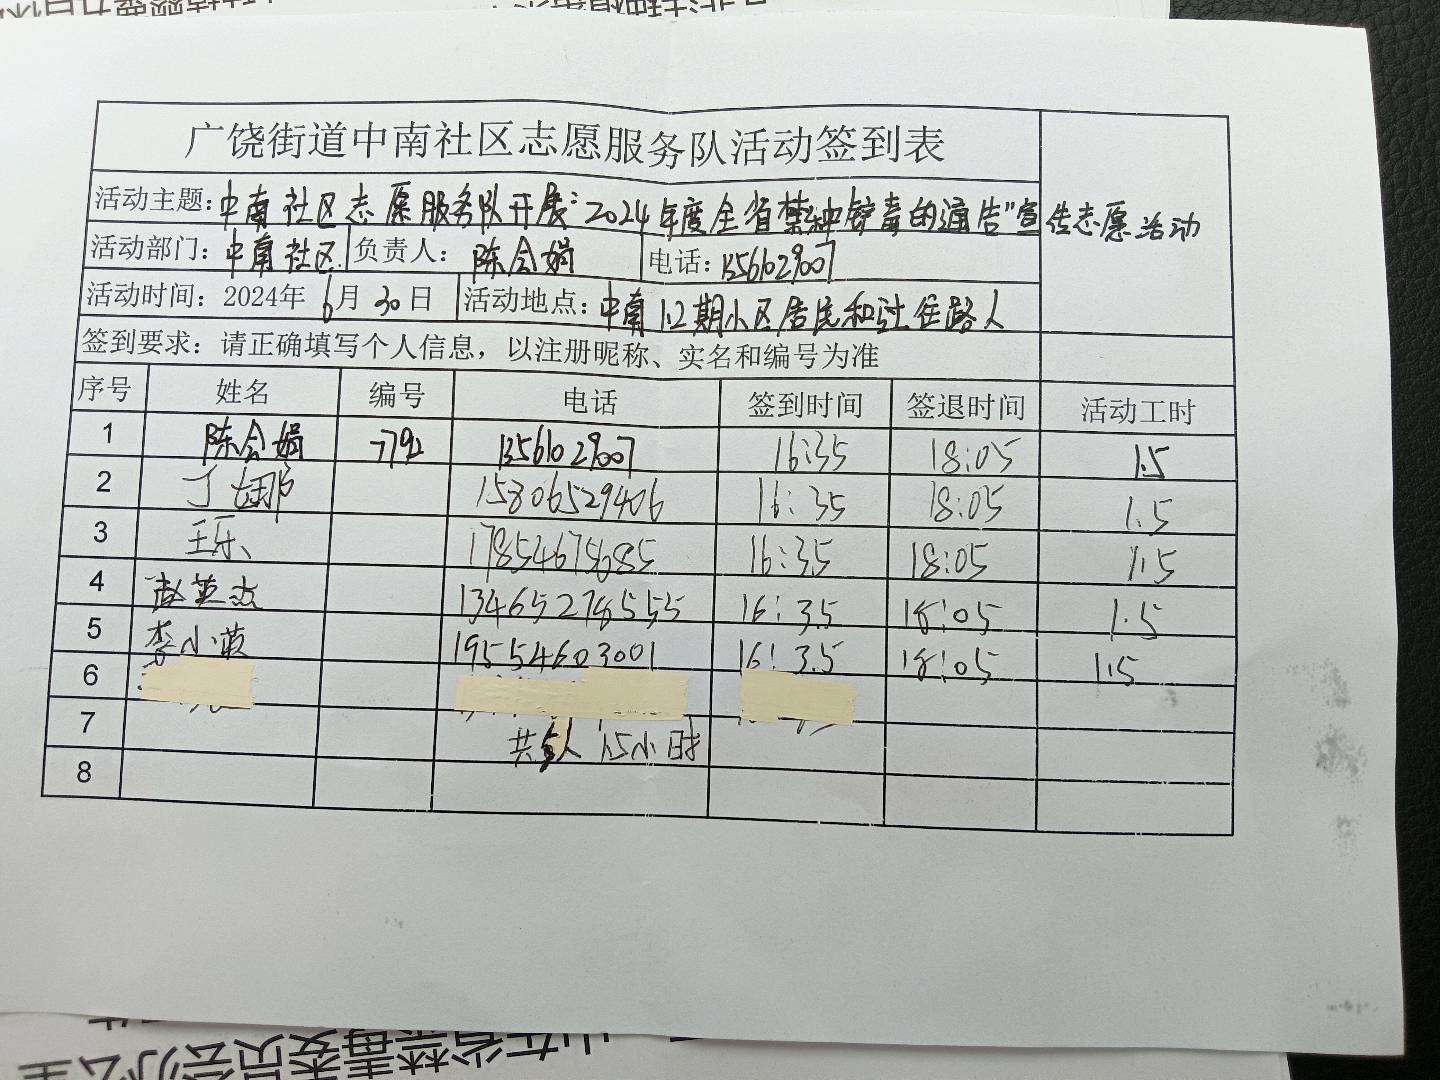 广饶街道中南社区志愿服务队活动签到表
活动主题：中南社区志愿服务队开展"2024年度全省禁种铲毒的通告"宣传志愿活动
活动部门：中南社区 负责人：陈会娟 电话：13561029007
活动时间：2024年6月30日 活动地点：中南1.2期小区居民和过往路人
签到要求：请正确填写个人信息，以注册昵称、实名和编号为准
序号 姓名 编号 电话 签到时间 签退时间 活动工时
1 陈会娟 7792 13561029007 16:35 18:05 1.5
2 丁娜 15806529406 16:35 18:05 1.5
3 王乐 17854675685 16:35 18:05 1.5
4 赵英杰 13465278555 16:35 18:05 1.5
5 李小敬 19554603001 16:35 18:05 1.5
6
7 共5人 1.5小时
8